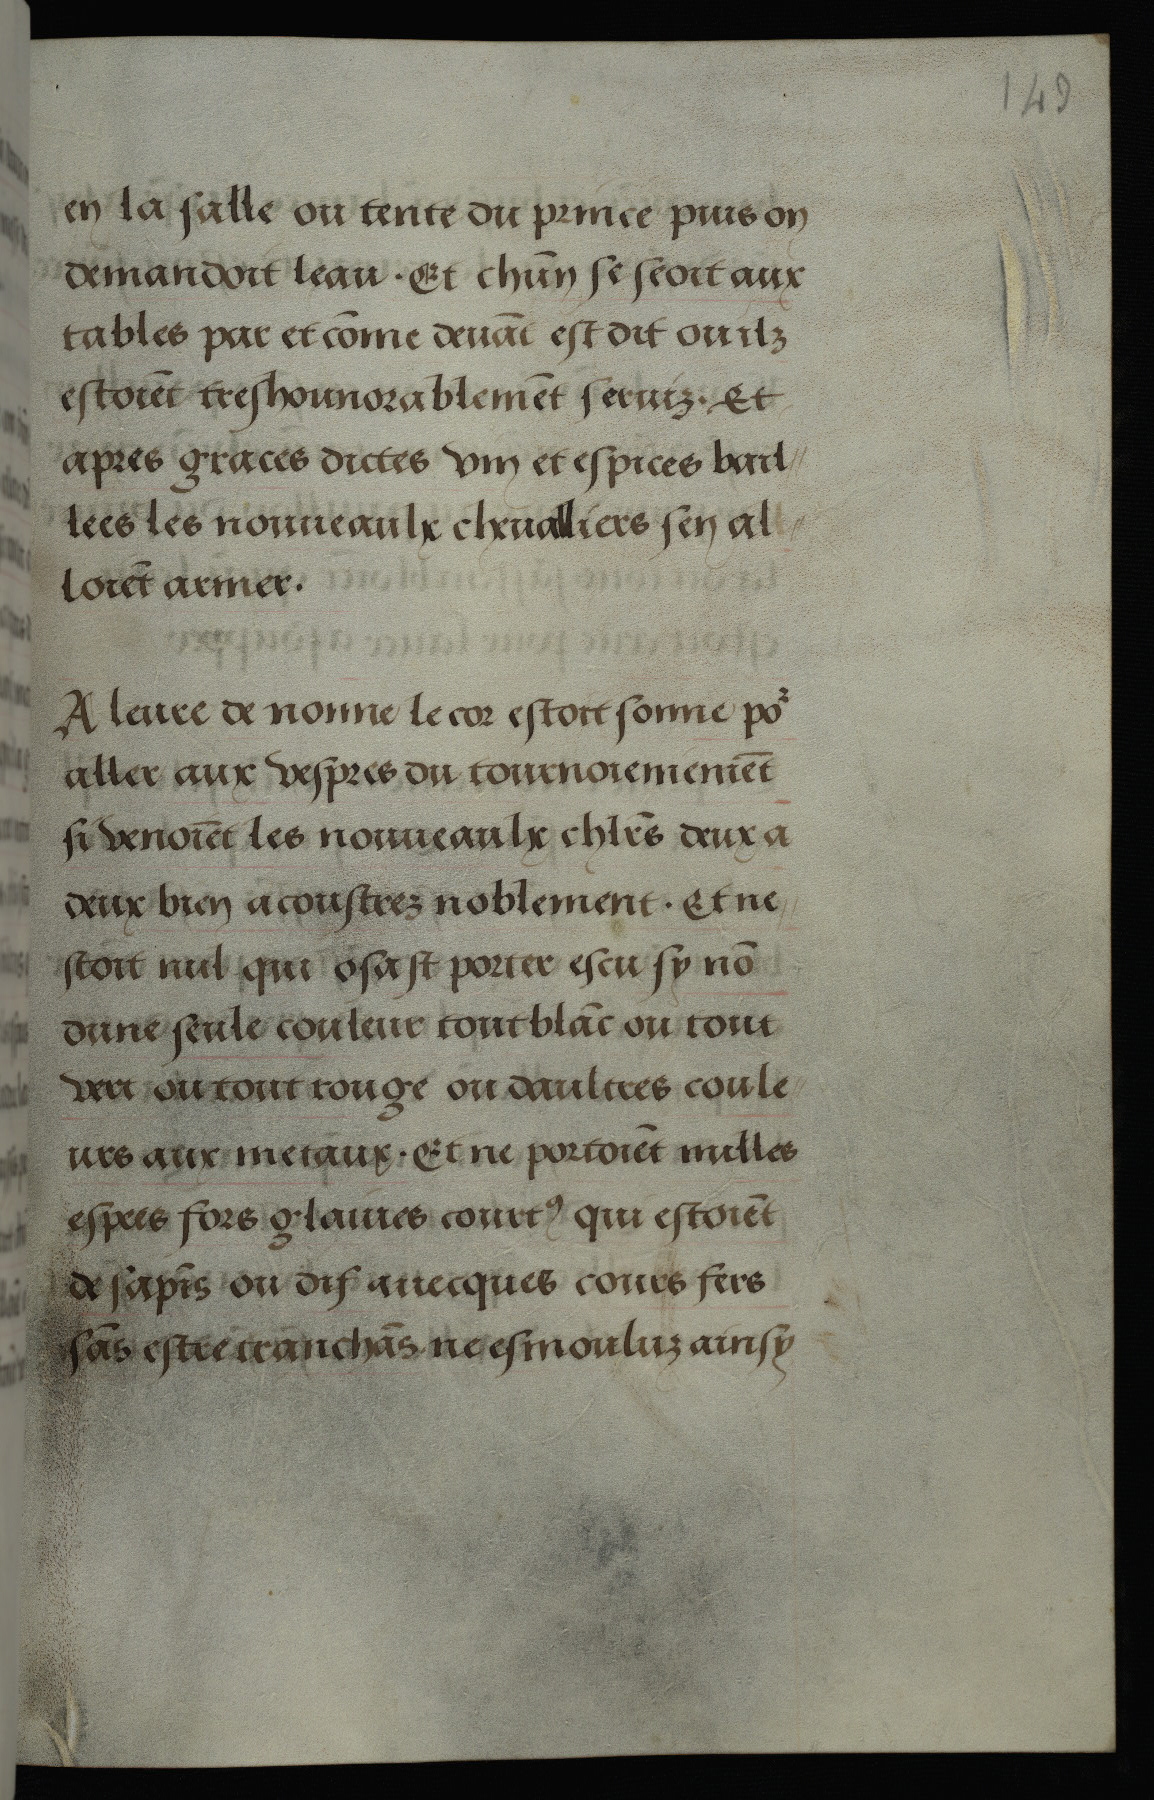 149
en la salle ou tente du prince puis on
demandoit leau . Et chũn se seoit aux
tables par et cõme deuãt est dit ou ilz
estoiẽt treshounorablemẽt seruiz . Et
apres graces dictes vin et espices bail//
lees les nouueaulx cheualliers sen al//
loiẽt armer .
A leure de nonne le cor estoit sonne poᷣ
aller aux vespres du tournoiemeniẽt
si venoiẽt les nouueaulx chlr̃s deux a
deux bien acoustrez noblement . Et ne//
stoit nul qui osast porter escu sy nõ
dune seule couleur tout blãc ou tout
vert ou tout rouge ou daultres coule//
urs aux metaux . Et ne portoiẽt nulles
espees fors glaiues courtꝰ qui estoiẽt
de sapĩs ou dif auecques cours fers
sãs estre tranchãs ne esmouluz ainsy